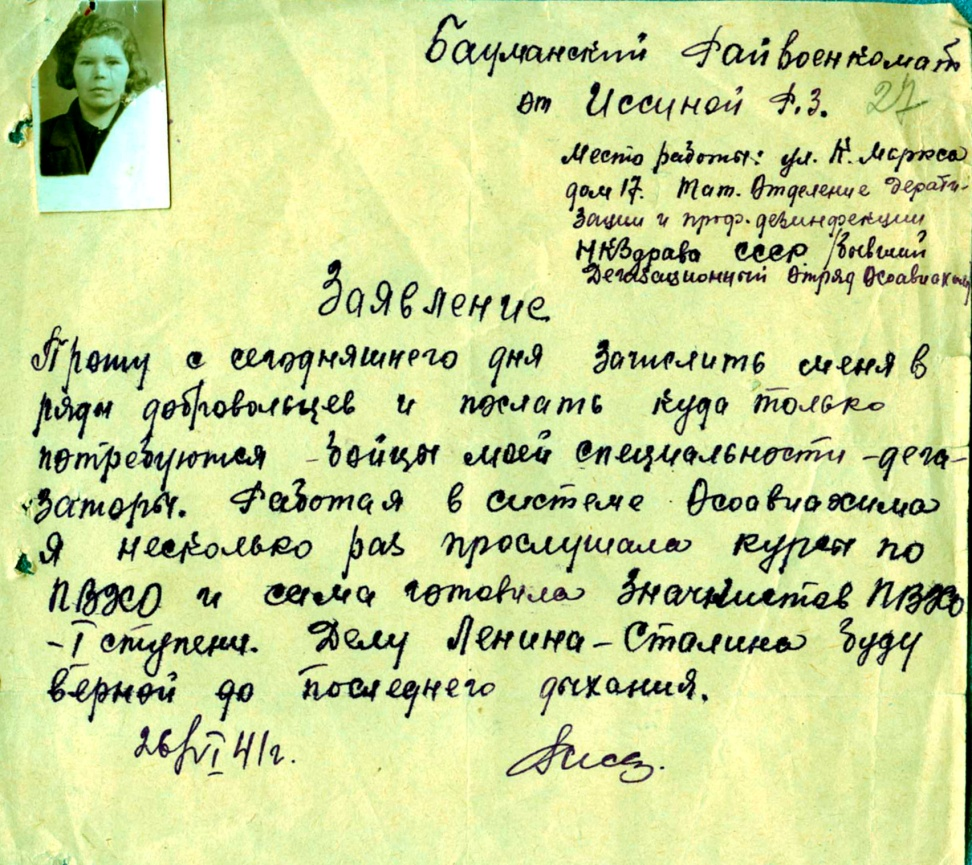 Бауманский Райвоенкомат
от Иссиной Ф.З. 27
Место работы: ул. К. Маркса
дом 17. Тат. Отделение дерати-
зации и проф. дезинфекции
НКЗдрава СССР /бывший
Дегазационный отряд Осоавиахима
Заявление
Прошу с сегодняшнего дня зачислить меня в
ряды добровольцев и послать куда только
потребуются бойцы моей специальности - дега-
заторы. Работая в системе Осоавиахима
я несколько раз прослушала курсы по
ПВХО и сама готовила значкистов ПВХО
- I ступени. Делу Ленина - Сталина буду
верной до последнего дыхания.
26/VI 41г.